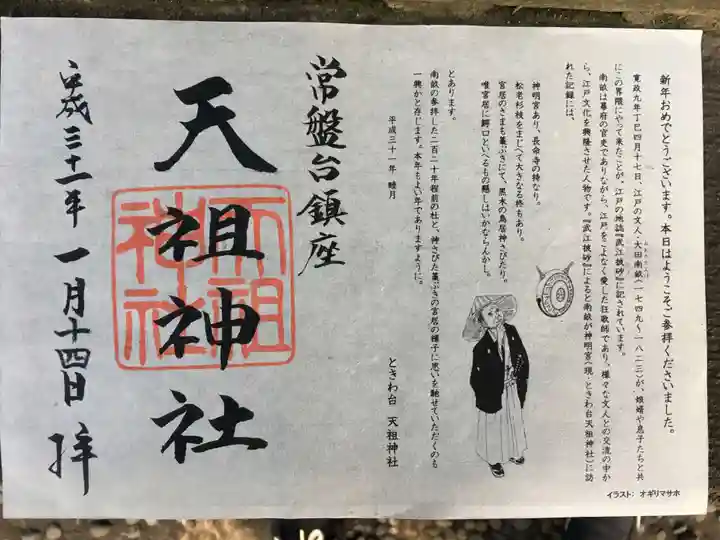 新年おめでとうございます。本日はようこそご参拝くださいました。
寛政九年丁巳四月十七日、江戸の文人・大田南畝(一七四九~一八二三)が、娘婿や息子たちと共
にこの界隈にやって来たことが、江戸の地誌『武江披砂』に記されています。
南畝は幕府の官吏でありながら、江戸をこよなく愛した狂歌師であり、様々な文人との交流の中か
ら、江戸文化を興隆させた人物です。『武江披砂』によると南畝が神明宮(現・ときわ台天祖神社)に訪
れた記録には、
神明宮あり、長命寺の持なり。
松老杉枝をまじへて大きなる柊もあり。
宮居のさまも藁ぶきにて、黒木の鳥居神さびたり。
唯宮居に鰐口といへるもの懸しはいかならんかし。
とあります。
南畝の参拝した二百二十年程前の杜と、神さびた藁ぶきの宮居の様子に思いを馳せていただくのも
一興かと存じます。本年もよい年でありますように。
平成三十一年 睦月
ときわ台 天祖神社
イラスト:オギリマサホ
常盤台鎮座
天祖神社
天祖
神社
平成三十一年 一月十四日 拝